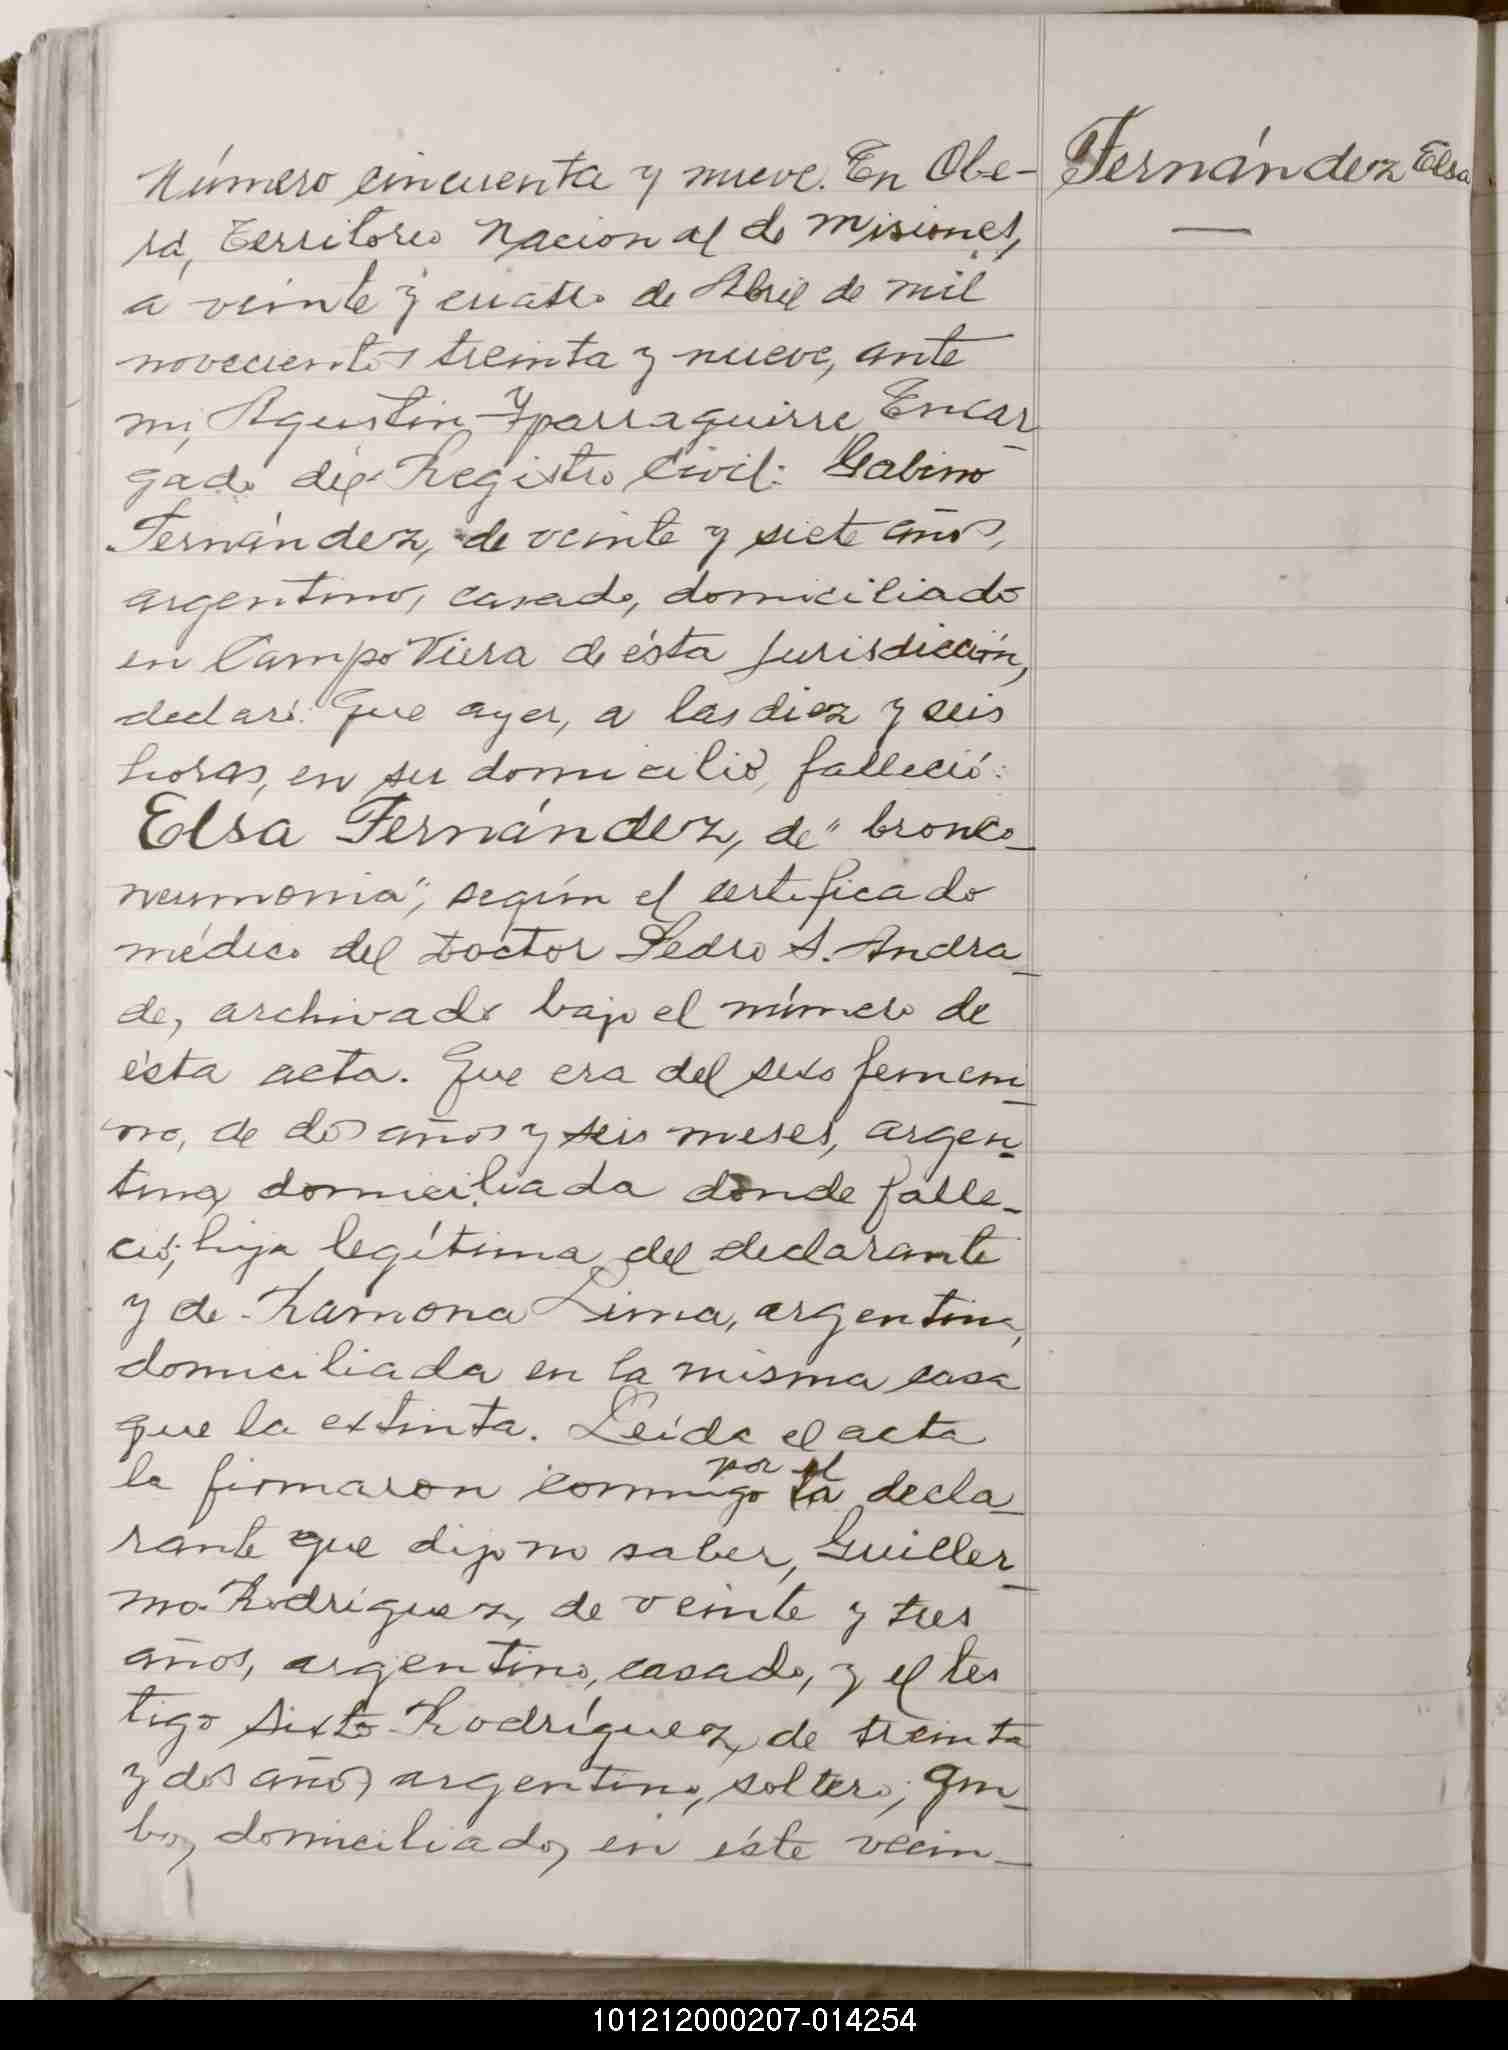 Número cincuenta y nueve. En Obe-
rá, Territorio Nacional de Misiones,
a veinte y cuatro de Abril de mil
novecientos treinta y nueve, ante
mi, Agustin Yparraguirre Encar-
gado del Registro Civil: Gabino
Fernández, de veinte y siete años,
argentino, casado, domiciliado
en Campo Viera de ésta jurisdicción,
declaró: Que ayer, a las diez y seis
horas, en su domicilio, falleció:
Elsa Fernández, de "bronco-
neumonia", según el certificado
médico del Doctor Pedro S. Andra-
de, archivado bajo el número de
ésta acta. Que era del sexo femeni-
no, de dos años y seis meses, argen-
tina, domiciliada donde falle-
ció; hija legítima del declarante
y de Ramona Lima, argentina,
domiciliada en la misma casa
que la extinta. Leída el acta
por el
la firmaron conmigo la decla-
rante que dijo no saber, Guiller-
mo Rodríguez, de veinte y tres
años, argentino, casado, y el tes
tigo Sixto Rodríguez, de treinta
y dos años, argentino, soltero; am-
bos domiciliados en éste vecin-
Fernández Elsa
101212000207-014254